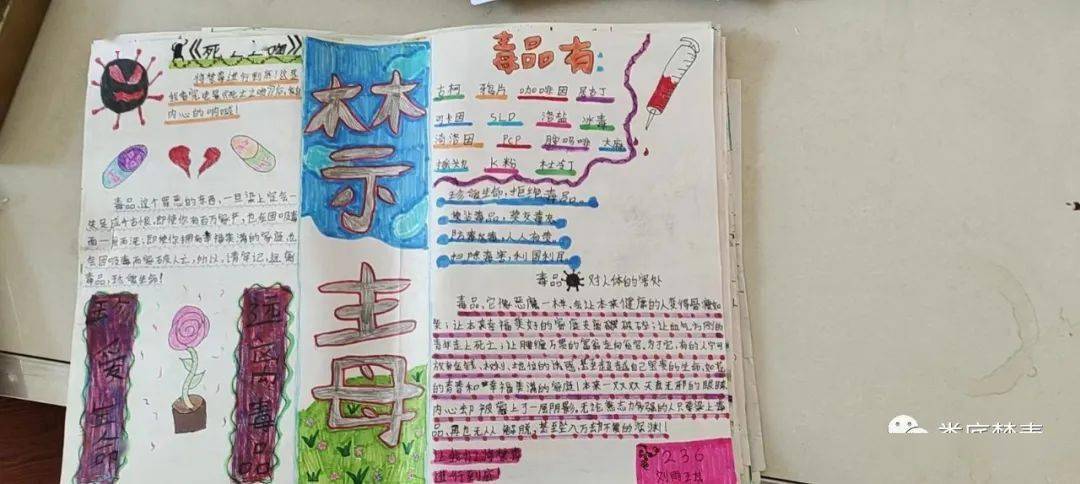 《死亡之吻》
将禁毒进行到底！这是
我看完电影《死亡之吻》后，发自
内心的呐喊！
毒品，这个罪恶的东西，一旦染上它会一
失足成千古恨，即使你有百万家产，也会因吸毒
而一贫如洗；即使你拥有幸福美满的家庭，也
会因吸毒而家破人亡，所以，请牢记，远离
毒品，珍爱生命！
珍爱生命
远离毒品
禁毒
毒品有：
古柯 鸦片 咖啡因
可卡因 浴盐 冰毒
海洛因 PCP 大麻
摇头丸 K粉 杜冷丁
珍惜生命，拒绝毒品。
莫沾毒品，莫交毒友
防毒反毒，人人有责。
扫除毒害，利国利民
毒品对人体的害处
毒品，它像恶魔一样，会让本来健康的人变得骨瘦如
柴；让本来幸福美好的家庭支离破碎；让血气方刚的
青年走上死亡；让腰缠万贯的富翁走向贫穷，为了它，有的人宁可
放弃金钱、权利、地位的诱惑，甚至葬送自己宝贵的生命，如花
的青春和幸福美满的家庭！本来一双双天真无邪的眼睛
内心却被蒙上了一层阴影。无论意志力多强的人只要染上毒
品，黑也无人解脱，甚至坠入万劫不复的深渊！
让我们将禁毒
进行到底
236
娄底禁毒